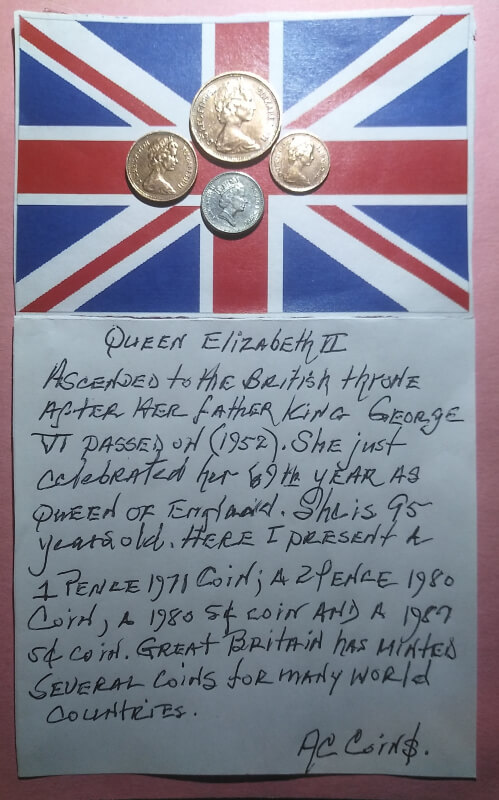 Queen Elizabeth II
Ascended to the British throne
After Her father King George
VI passed on (1952). She just
celebrated her 69th year as
Queen of England. She is 95
years old. Here I present a
1 Pence 1971 Coin; a 2 Pence 1980
Coin, a 1980 5¢ coin and a 1987
5¢ coin. Great Britain has minted
several coins for many world
countries.
AC Coin$.